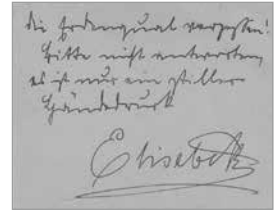 die Erdenqual vergessen!
Bitte nicht antworten
es ist nur ein stiller
Händedruck
Elisabeth